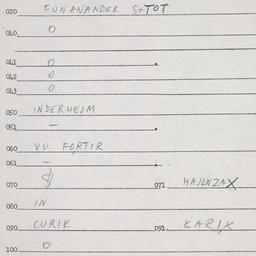 020 FUNANANDER S+TOT
040 0
041 0
042 0
043 0
050 INDERHEIM
051 —
060 VU FORTIR
061 —
070 071 HAJLNZAX
080 IN
090 CURIK 091 KARIK
100 0